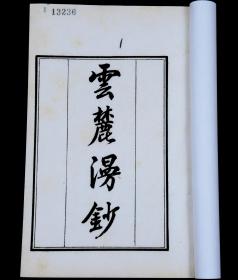 13236
1
雲麓漫鈔